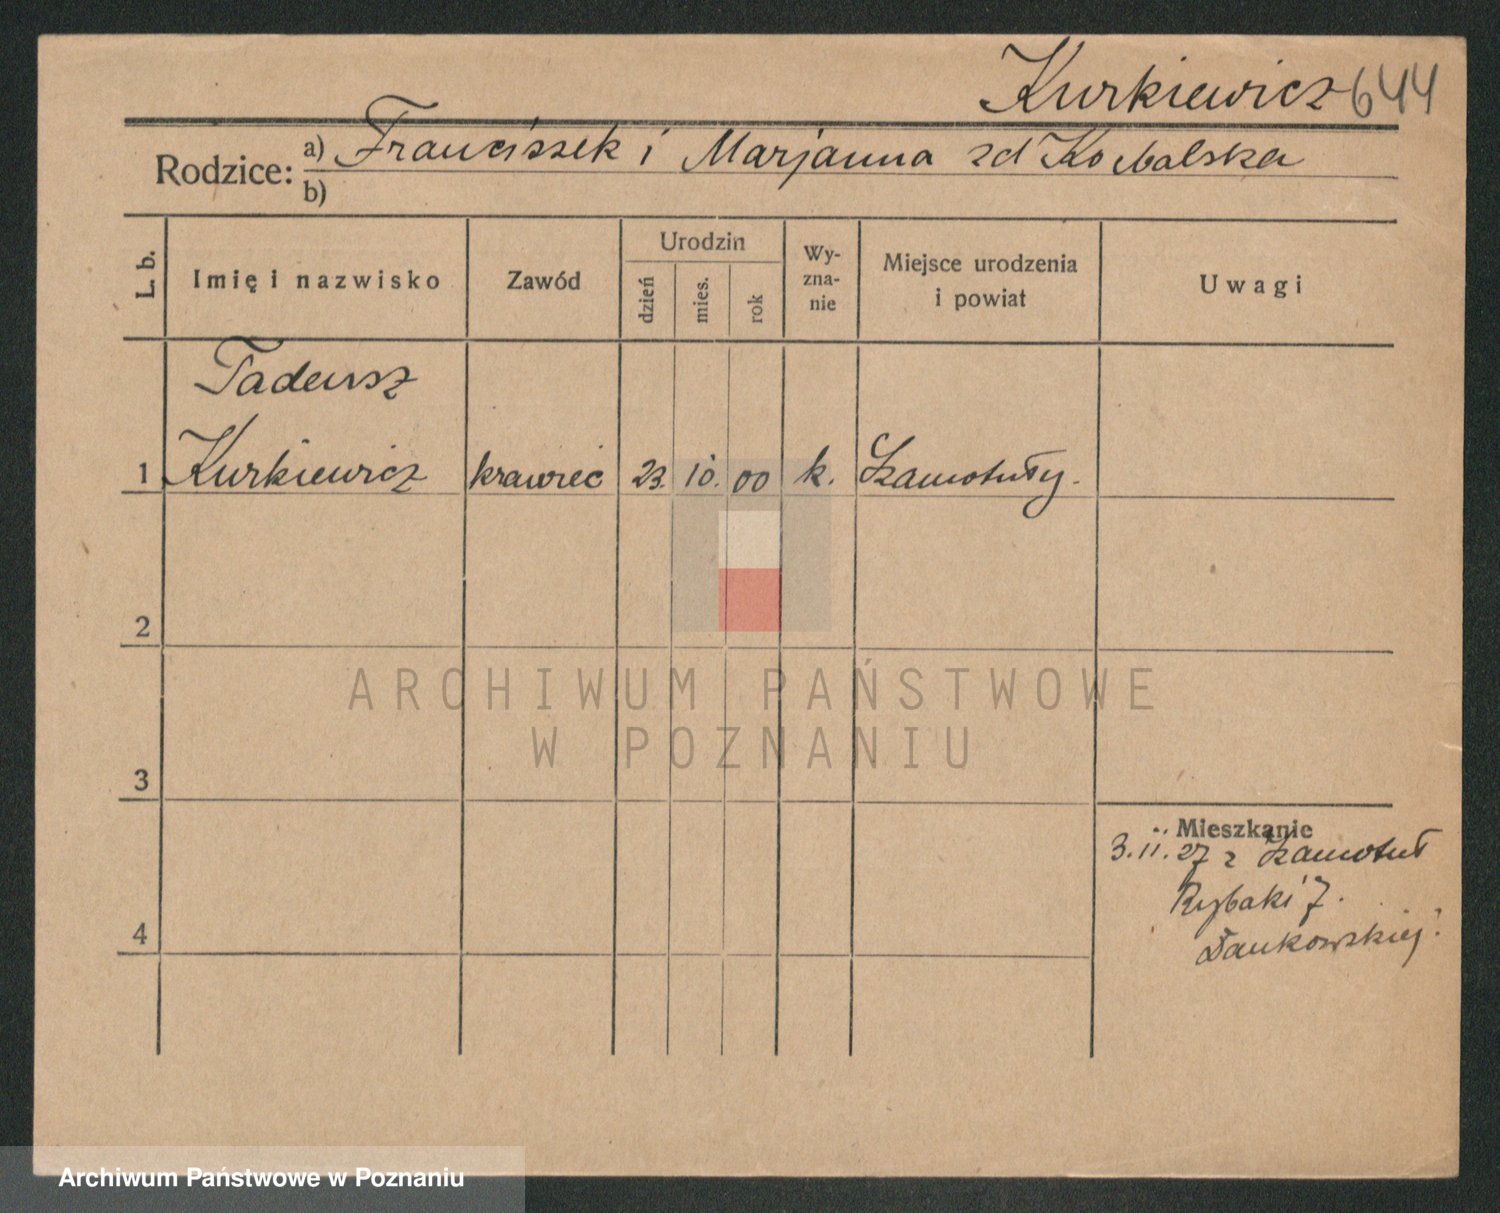 Kurkiewicz 644
Rodzice: a) Franciszek i Marjanna zd Kowalska
b)
L. b.
Imię i nazwisko
Zawód
Urodzin
dzień
mies.
rok
Wy-
zna-
nie
Miejsce urodzenia
i powiat
Uwagi
Tadeusz
1 Kurkiewicz krawiec 23. 10. 00 k. Szamotuły.
2
ARCHIWUM PAŃSTWOWE
W POZNANIU
3
Mieszkanie
3.II.27 z Szamotuł
Rybaki 7.
4
Archiwum Państwowe w Poznaniu